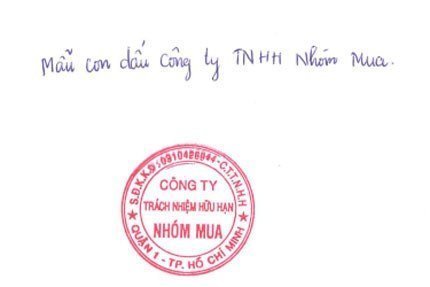 Mẫu con dấu công ty TNHH Nhóm Mua.
S.Đ.K.K.D: 0310426944-C.T.T.N.H.H
CÔNG TY
TRÁCH NHIỆM HỮU HẠN
NHÓM MUA
QUẬN 1 - TP. HỒ CHÍ MINH